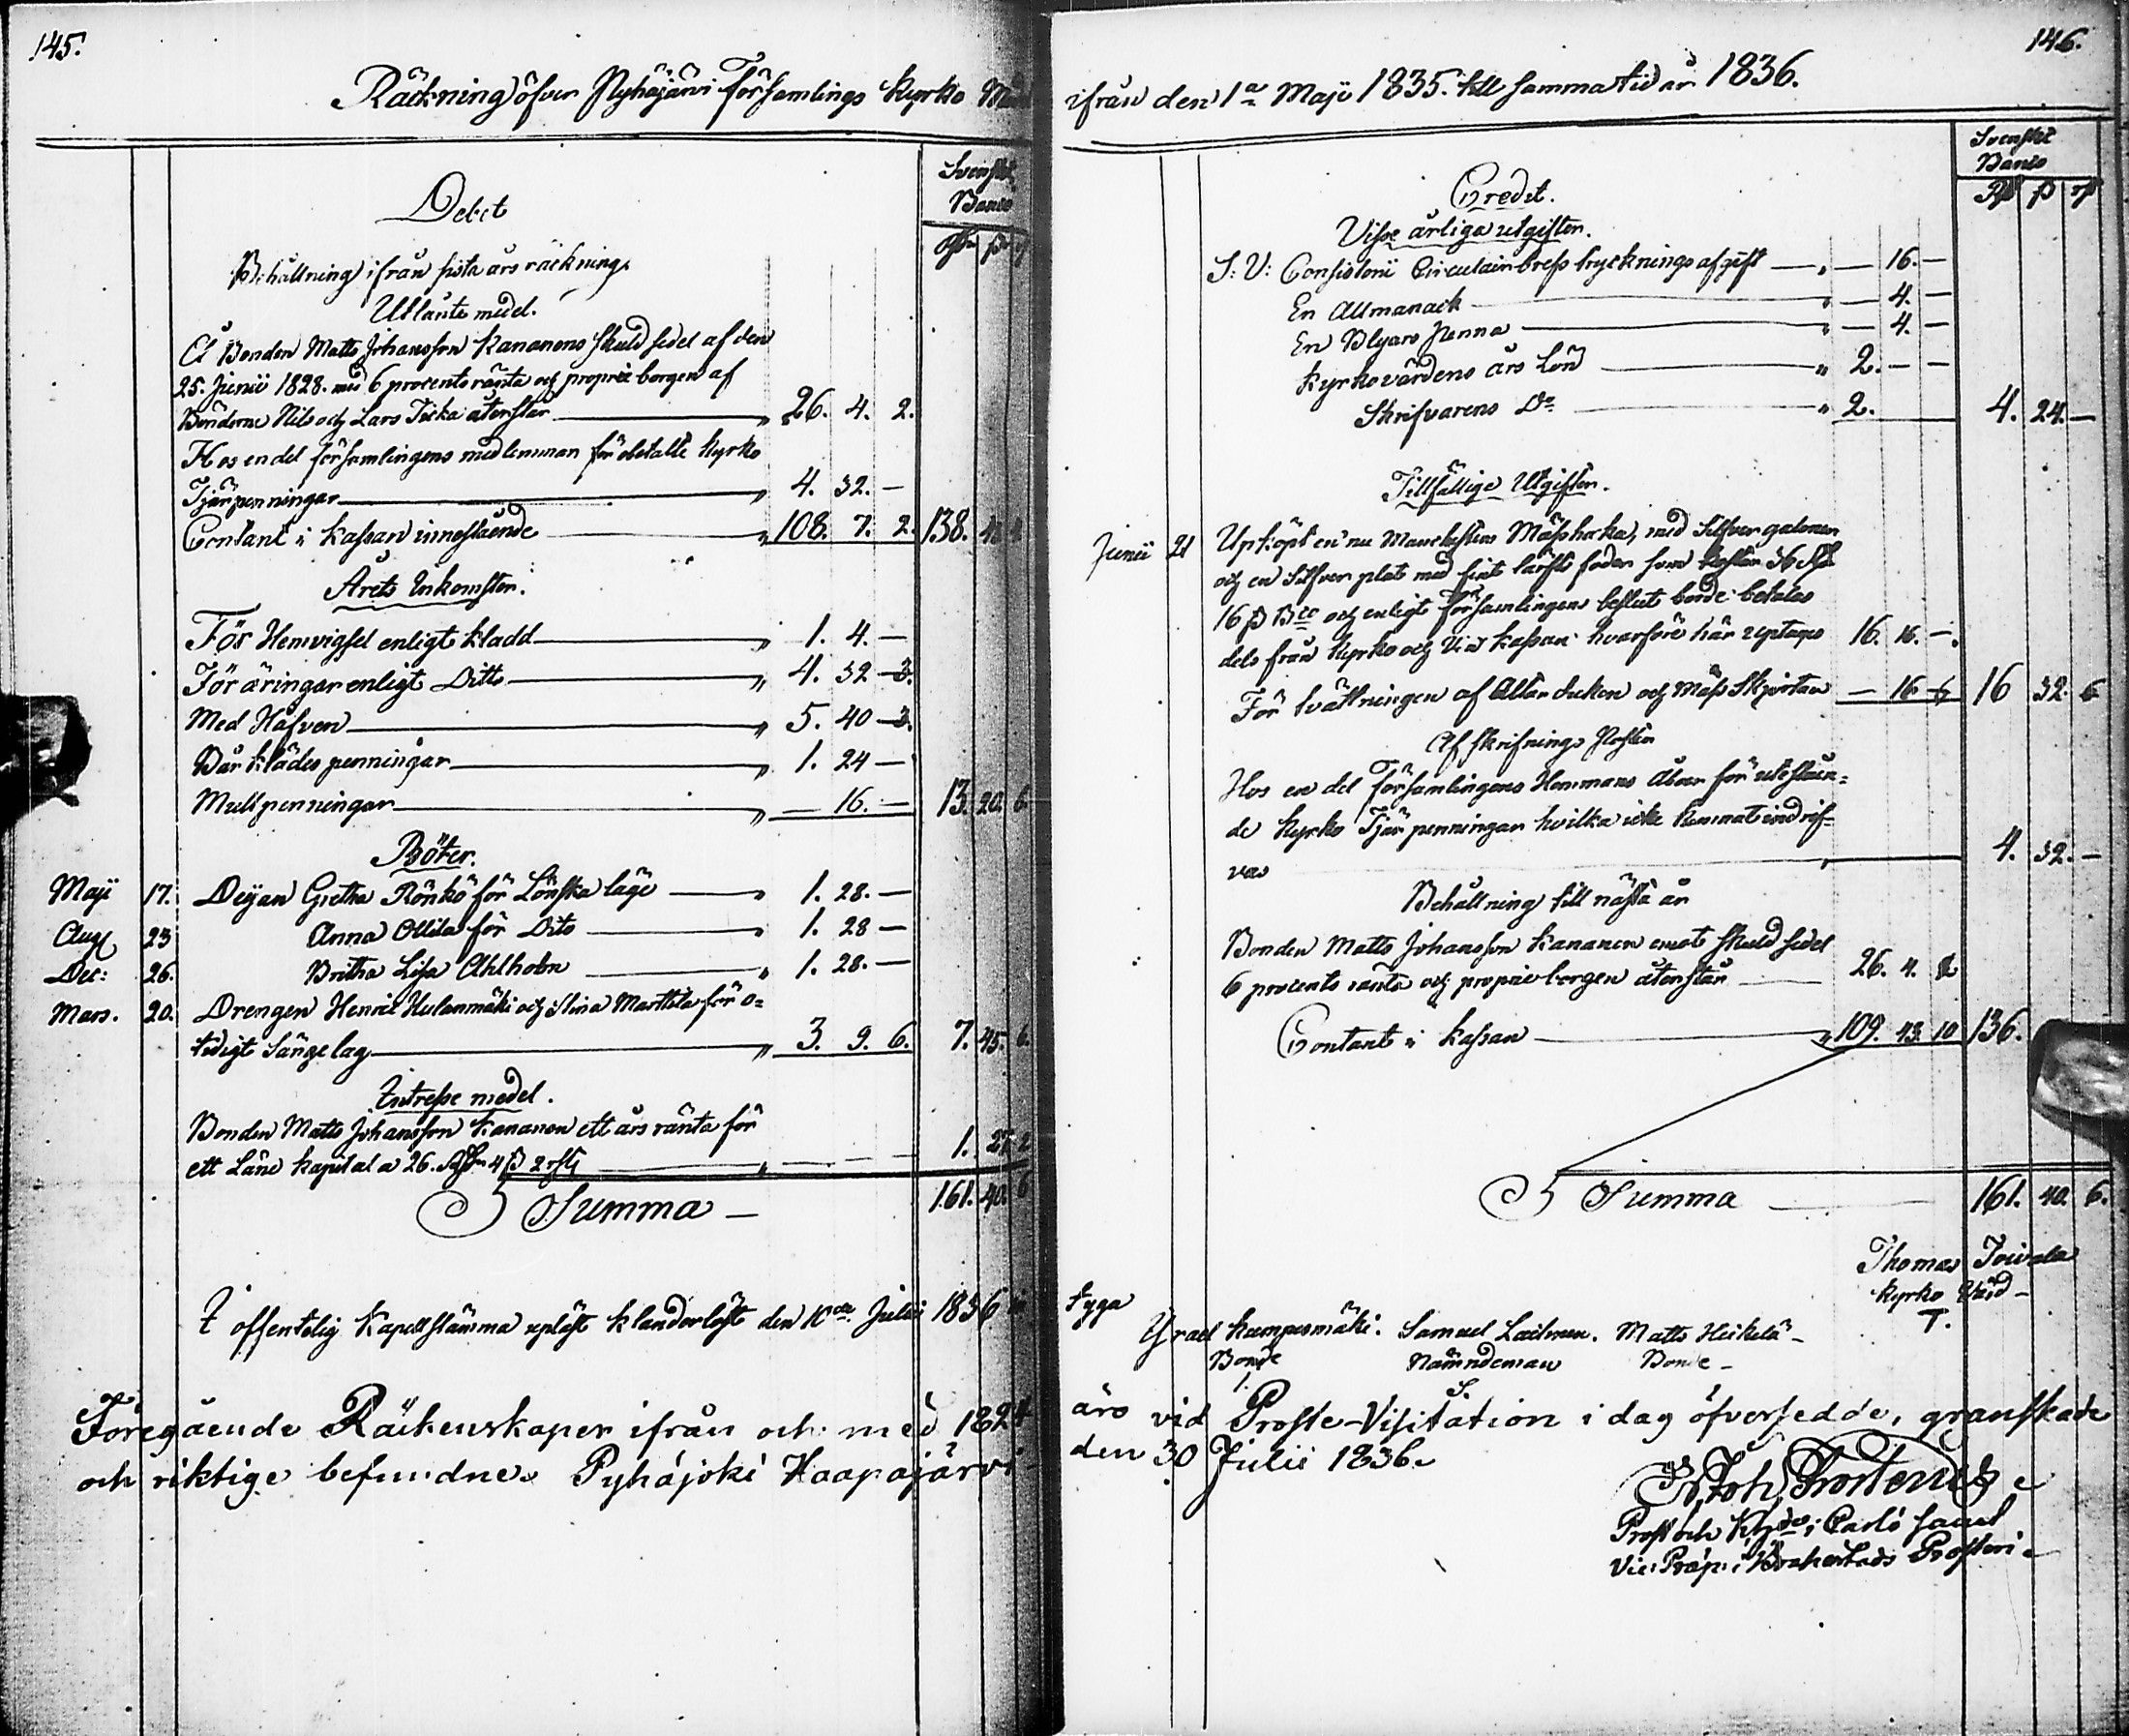 145.
Räckning öfver Pyhäjärvi Församlings Kyrko
Svenskt
Banco
Debet
Behållning ifrån sista års räckning
Utlånte medel.
Å Bonden Matts Johansson Kananens Skuld sedel af den
25. Junii 1828. med 6 procents ränta och proprie borgen af
Bönderne Nils och Lars återstår " 26. 4. 2.
Hos en del församlingens medlemmar för obetalte Kyrko
Tjärpenningar " 4. 32. —
Contant i Kassan innestående " 108. 7. 2. 138.
Årets Inkomster.
För Hemvigsel enligt Kladd " 1. 4. —
För äringar enligt Ditto " 4. 32 — 3.
Med Håfven " 5. 40 — 3.
Bår Klädes penningar " 1. 24 —
Mullpenningar " — 16. — 13. 20. 6
Böter.
Maji 17. Deijan Gretha Rönkö för Lönska läge " 1. 28. —
Aug 23 Anna Ollila för Dito " 1. 28 —
Dec: 26. Britha Lisa Ahlholm " 1. 28. —
Mars. 20. Drengen Henric Hulanmäki och Stina Marttila för o=
tidigt Sängelag " 3. 9. 6. 7. 45. 6.
Intresse medel.
Bonden Matts Johansson Kananen ett års ränta för
ett Låne Kapital a 26. Rbr 4 ß 2 rst " — — — 1. 27 2
Summa — 161. 40. 6
I offentelig Kapellstämma upläst klanderlöst den 10de Julii 1836
Föregående Räckenskaper ifrån och med 1824
och riktige befundne. Pyhäjoki Haapajärvi
146.
ifrån den 1a Maji 1835. till samma tid år 1836.
Svenskt
Banco
Credit.
Visse årliga utgifter.
S: V: Consistorii Circulair brefs tryckningsafgift — " — 16. —
En Allmanack " — 4. —
En Blyars Penna " — 4. —
Kyrkovärdens års Lön " 2. — —
Skrifvarens Do " 2. 4. 24. —
Tillfällige Utgifter.
Junii 21 Upköpt en nu Manchesters Mässhacka, med Silfver galoner
och en Silfver plat med fint lärfts foder som kostar 36 Rd
16 ß Bco och enligt Församlingens beslut borde betalas
dels från Kyrko och Vin Kassan hvarföre här uptages 16. 16. —
För tvättningen af Altar duken och Mäss Skjortan — 16 6 16 32. 6
Afskrifnings Poster
Hos en del Församlingens Hemmans Åboer för utestäen=
de Kyrko Tjär penningar hvilka icke kunnat indrif=
vas " 4. 32. —
Behållning till nästa år
Bonden Matts Johansson Kananen emot skuld sedel
6 procents ränta och proprie borgen återstår 26. 4. 2
Contant i Kassan " 109. 43. 10 136.
Summa 161. 40. 6.
Thomas Toivola
Kyrko Värd —
T.
tyga
Israel Kumpusmäki. Samuel Laitinen. Matts Heikelä —
Bonde Nämndeman Bonde —
I. S.
äro vid Proste-Visitation i dag öfversedde, granskade
den 30 Julii 1836.
Joh. Frosterus
Prost och Khde i Carlö samt
Vice Præp: i Brahestads Prosteri